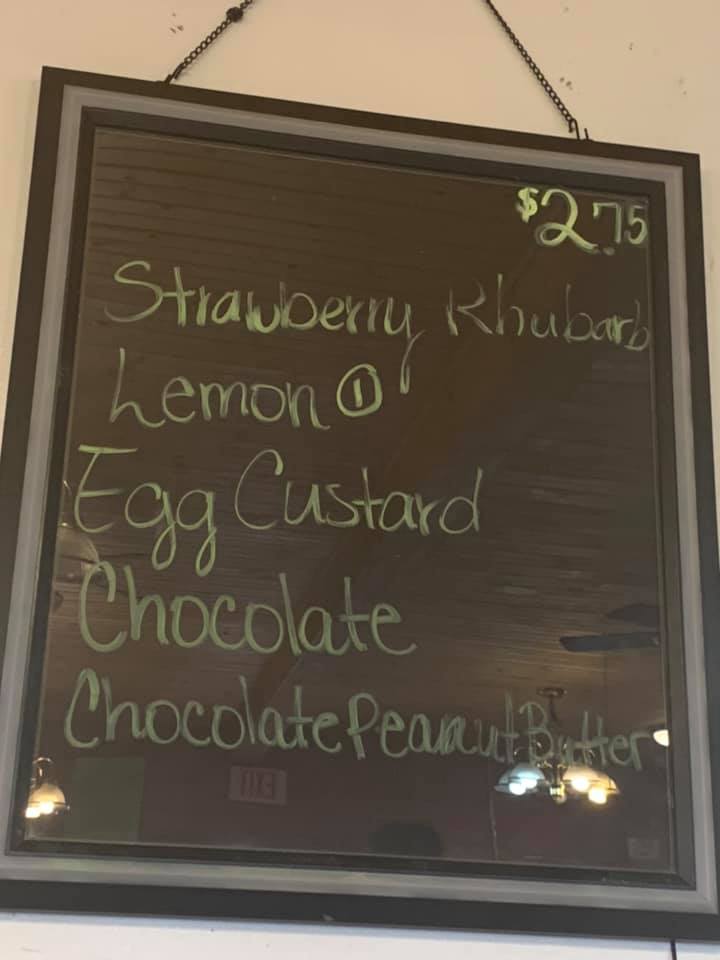 $2.75
Strawberry Rhubarb
Lemon ①
Egg Custard
Chocolate
Chocolate Peanut Butter
EXIT